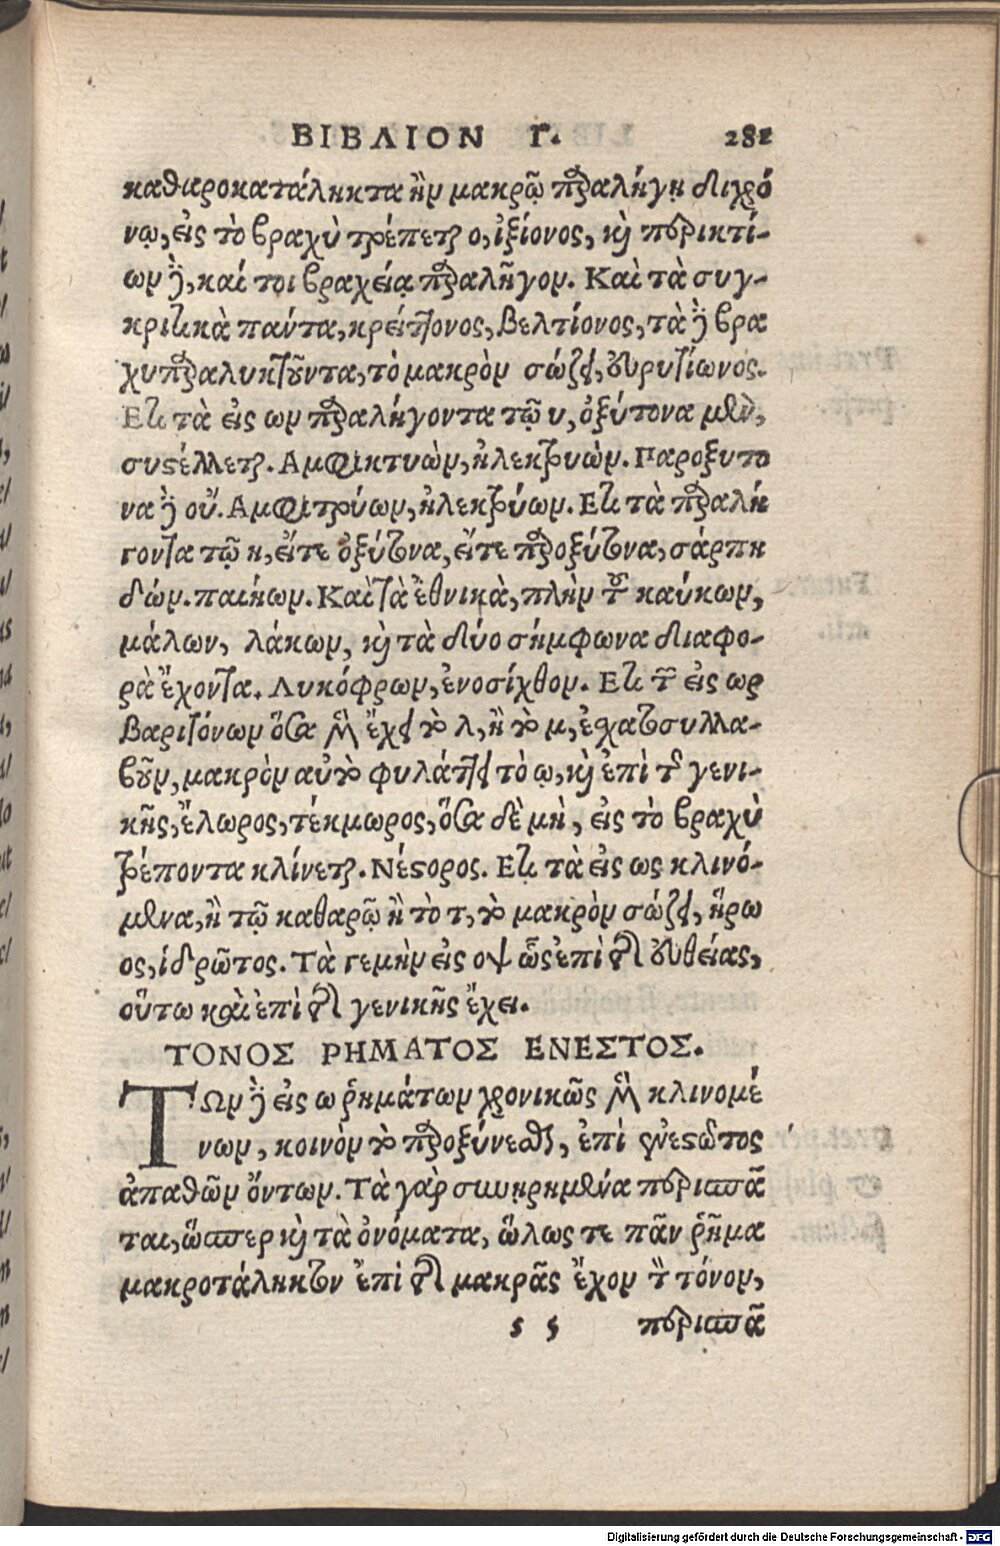 ΒΙΒΛΙΟΝ Γ. 281
καθαροκατάληκτα ἢν μακρῷ παραλήγῃ διχρό
νῳ, εἰς τὸ βραχὺ τρέπεται ο, ἰξίονος, καὶ περικτί-
ων δὲ, καί τοι βραχείᾳ παραλῆγον. Καὶ τὰ συγ-
κριτικὰ πάντα, κρείττονος, βελτίονος, τὰ δὲ βρα
χυπαραλυκτοῦντα, τὸ μακρὸν σώζει, εὐρυτίωνος.
Ετι τὰ εἰς ων παραλήγοντα τῷ υ, ὀξύτονα μὲν,
συστέλλεται. Αμφικτυὼν, ἠλεκτρυὼν. Παροξυτο
να δὲ οὔ. Αμφιτρύων, ἠλεκτρύων. Ετι τὰ παραλή
γοντα τῷ η, εἴτε ὀξύτονα, εἴτε παροξύτονα, σάρπη
δών. παιήων. Καὶ τὰ ἐθνικὰ, πλὴν τοῦ καύκων,
μάλων, λάκων, καὶ τὰ δύο σήμφωνα διαφο-
ρὰ ἔχοντα. Λυκόφρων, ἐνοσίχθον. Ετι τῶν εἰς ωρ
βαριτόνων ὅσα μὲν ἔχει τὸ λ, ἢ τὸ μ, ἐχατοσυλλα-
βοῦν, μακρὸν αὐτὸ φυλάττει τὸ ῳ, καὶ ἐπὶ τῆς γενι-
κῆς, ἔλωρος, τέκμωρος, ὅσα δὲ μὴ, εἰς τὸ βραχὺ
τρέποντα κλίνεται. Νέστορος. Ετι τὰ εἰς ως κλινό-
μενα, ἢ τῷ καθαρῷ ἢ τὸ τ, τὸ μακρὸν σώζει, ἥρω
ος, ἱδρῶτος. Τὰ γεμὴν εἰς οψ ὧς ἐπὶ τῆς εὐθείας,
οὕτω καὶ ἐπὶ τῆς γενικῆς ἔχει.
ΤΟΝΟΣ ΡΗΜΑΤΟΣ ΕΝΕΣΤΟΣ.
ΤΩν δὲ εἰς ω ῥημάτων χρονικῶς μὲν κλινομέ
νων, κοινὸν τὸ παροξύνεσθαι, ἐπὶ ἐνεστῶτος
ἀπαθῶν ὄντων. Τὰ γὰρ συνῃρημένα περισπᾶ
ται, ὥσπερ καὶ τὰ ὀνόματα, ὥλως τε πᾶν ῥῆμα
μακροτάληκτον ἐπὶ τῆς μακρᾶς ἔχον τὸν τόνον,
s s περισπᾶ
Digitalisierung gefördert durch die Deutsche Forschungsgemeinschaft - DFG